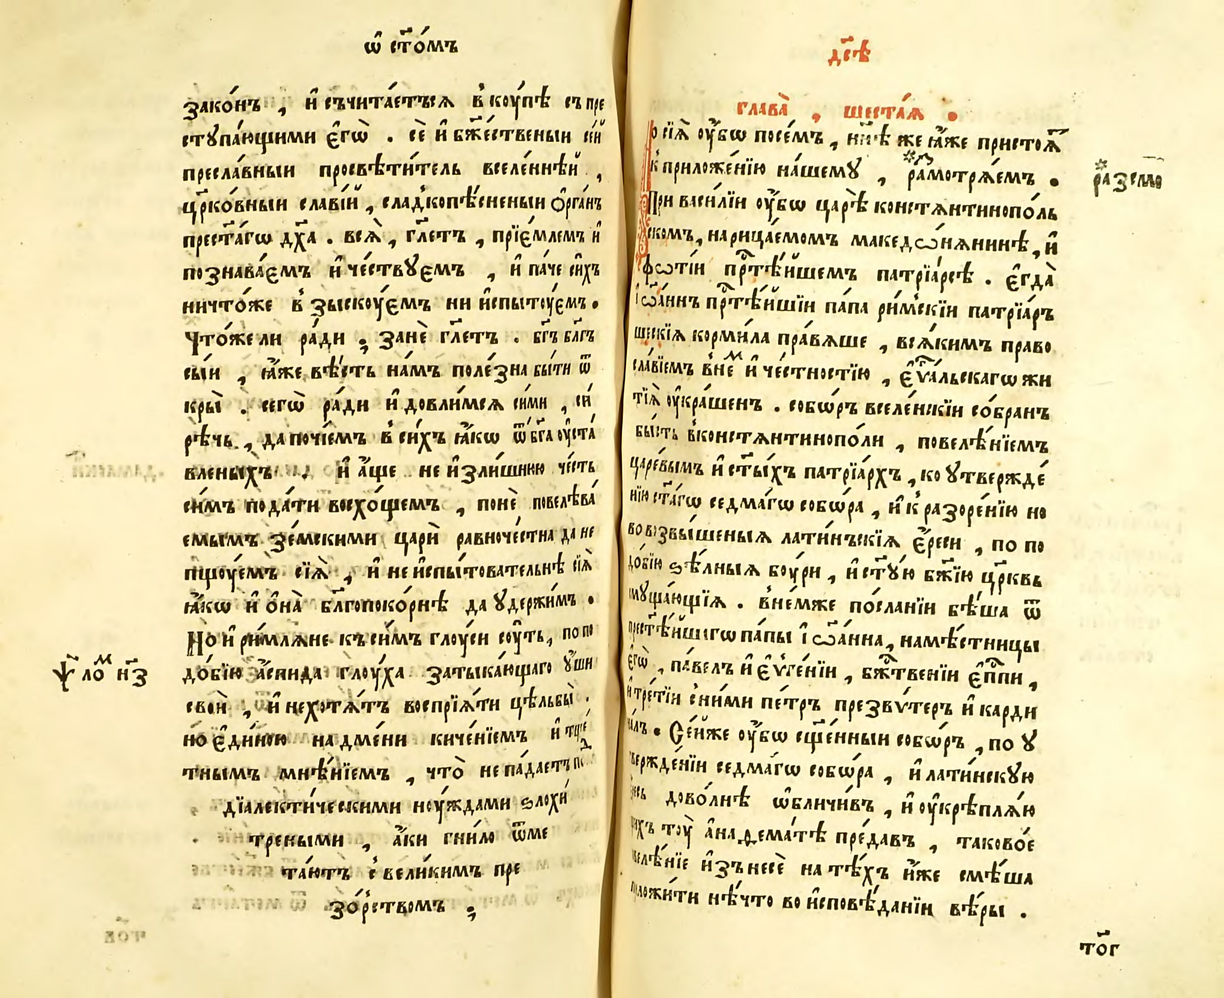 ѡ҃ ст҃о́мъ
зако́нъ , и҆ съчита́етъсѧ в҆ коу́пѣ съ пре
стꙋпа́ющими є҆гѡ̀ . сѐ и҆ бж҃е́ственыи се́й
пресла́вныи просвѣти́тель вселе́ннѣй ,
цр҃ко́вныи сла́вїй , сладкопѣ́сненыи ѻ҆рга́нъ
прест҃а́гѡ дх҃а . всѧ̀ , гл҃етъ , прїе́млемъ и҆
познава́емъ и҆ че́ствꙋемъ , и҆ па́че си́хъ
ничто́же в҆зыскоу́емъ ни и҆спытоу́емъ .
Что́же ли ра́ди ; занѐ гл҃етъ . бг҃ъ бл҃гъ
сы́и , ꙗ҆́же вѣ́сть на́мъ поле́зна бы́ти ѿ
кры̀ . сегѡ̀ ра́ди и҆ довли́мсѧ си́ми , си́
рѣчь , да почїе́мъ в҆ си́хъ ꙗ҆́кѡ ѿ бг҃а оу҆ста́
вленыхъ . и҆ а҆́ще не и҆зли́шнюю че́сть
си́мъ пода́ти восхо́щемъ , понѐ повелѣва́
емымъ зе́мскими цари̂ равноче́стна да не
пщоу́емъ сїѧ̀ , и҆ не и҆спы́товательнѣ сїѧ̀
ꙗ҆́кѡ и҆ ѻ҆на̀ бл҃гопоко́рнѣ да ꙋ҆держи́мъ .
Но и҆ ри́млѧне къ си́мъ глоу́си соу́ть , по по
до́бїю а҆́спида глоу́ха затыка́ющаго ꙋ҆́ши
своѝ , и҆ нехотѧ́тъ воспрїѧ́ти цѣльбы̀ .
но є҆ди́ною надме́ни киче́нїемъ и҆ тще́
тнымъ мнѣ́нїемъ , что̀ не па́даетъ по́д
дїалекти́ческими ноу́ждами ѕлохи́
треными , а҆́ки гни́ло ѿме
та́ютъ с҆ вели́кимъ пре
зо́рствомъ ;
ѱ҃ало́м н҃з
дс҃ѣ
глава̀ , шеста́ѧ .
о сїѧ̀ оу҆́бѡ посе́мъ , нн҃ѣ же ꙗ҆́же пристоѧ́т
к҆ приложе́нїю на́шемꙋ , ра́змотрѧемъ .
При васи́лїи оу҆́бѡ царѣ̀ констѧнтинопо́ль
скомъ , нарица́емомъ македѡ́нѧнинѣ , и҆
фѡ́тїи прт҃ѣ́йшемъ патрїа́рсѣ . є҆гда̀
і҆ѡа́ннъ прт҃ѣ́йшїи па́па ри́мскїи патрїа́ръ
шескїѧ корми́ла пра́вѧше , всѧ́кимъ право
сла́вїемъ в҆нем и҆ че́стностїю , є҆ѵ҃альскагѡ жи
тїѧ̀ оу҆кра́шенъ . собѡ́ръ вселе́нскїи со́бранъ
бы́сть в҆констѧнтинопо́ли , повелѣ́нїемъ
царе́вымъ и҆ ст҃ы́хъ патрїа́рхъ , ко ꙋ҆твержде́
нїю ст҃а́гѡ седма́гѡ собѡ́ра , и҆ к҆ разоре́нїю но
вовозвы́шеныѧ лати́нъскїѧ є҆́реси , по по
до́бїю ѕѣ́лныѧ боу́ри , и҆ ст҃ꙋ́ю бж҃їю цр҃квь
мꙋща́ющїѧ . в҆не́мже по́слании бѣ́ша ѿ
прест҃ѣ́йшагѡ па́пы і҆ѡа́нна , намѣ́стницы
є҆гѡ̀ , па́велъ и҆ є҆ѵге́нїи , бж҃твенїи є҆пп҃и ,
и҆ тре́тїи с҆ни́ми пе́тръ презвѵ́теръ и҆ карди
на́лъ . Се́йже оу҆́бѡ сщ҃е́нныи собѡ́ръ , по ꙋ
твержде́нїи седма́гѡ собѡ́ра , и҆ лати́нскꙋю
дово́лнѣ ѡ҆бличи́въ , и҆ оу҆крѣплѧ́ю
щихъ тоу̀ а҆на́ѳемѣ преда́въ , таково́е
велѣ́нїе и҆зънесѐ на тѣ́хъ и҆́же смѣ́ша
приложи́ти нѣ́что во и҆сповѣ́данїи вѣ́ры .
то́г